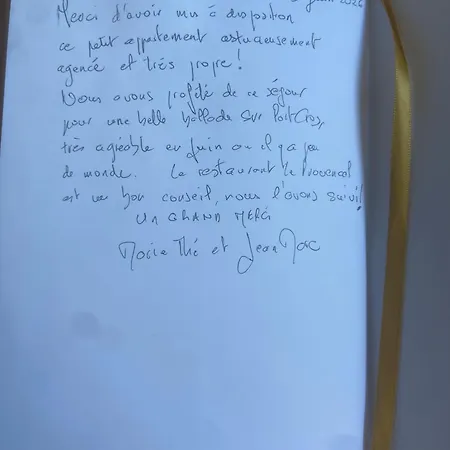 Juin 2024
Merci d'avoir mis à disposition
ce petit appartement astucieusement
agencé et très propre !
Nous avons profité de ce séjour
pour une belle ballade sur Port Cros,
très agréable en juin où il y a peu
de monde. Le restaurant le Provençal
est un bon conseil, nous l'avons suivi !
UN GRAND MERCI
Marie Thé et Jean Marc